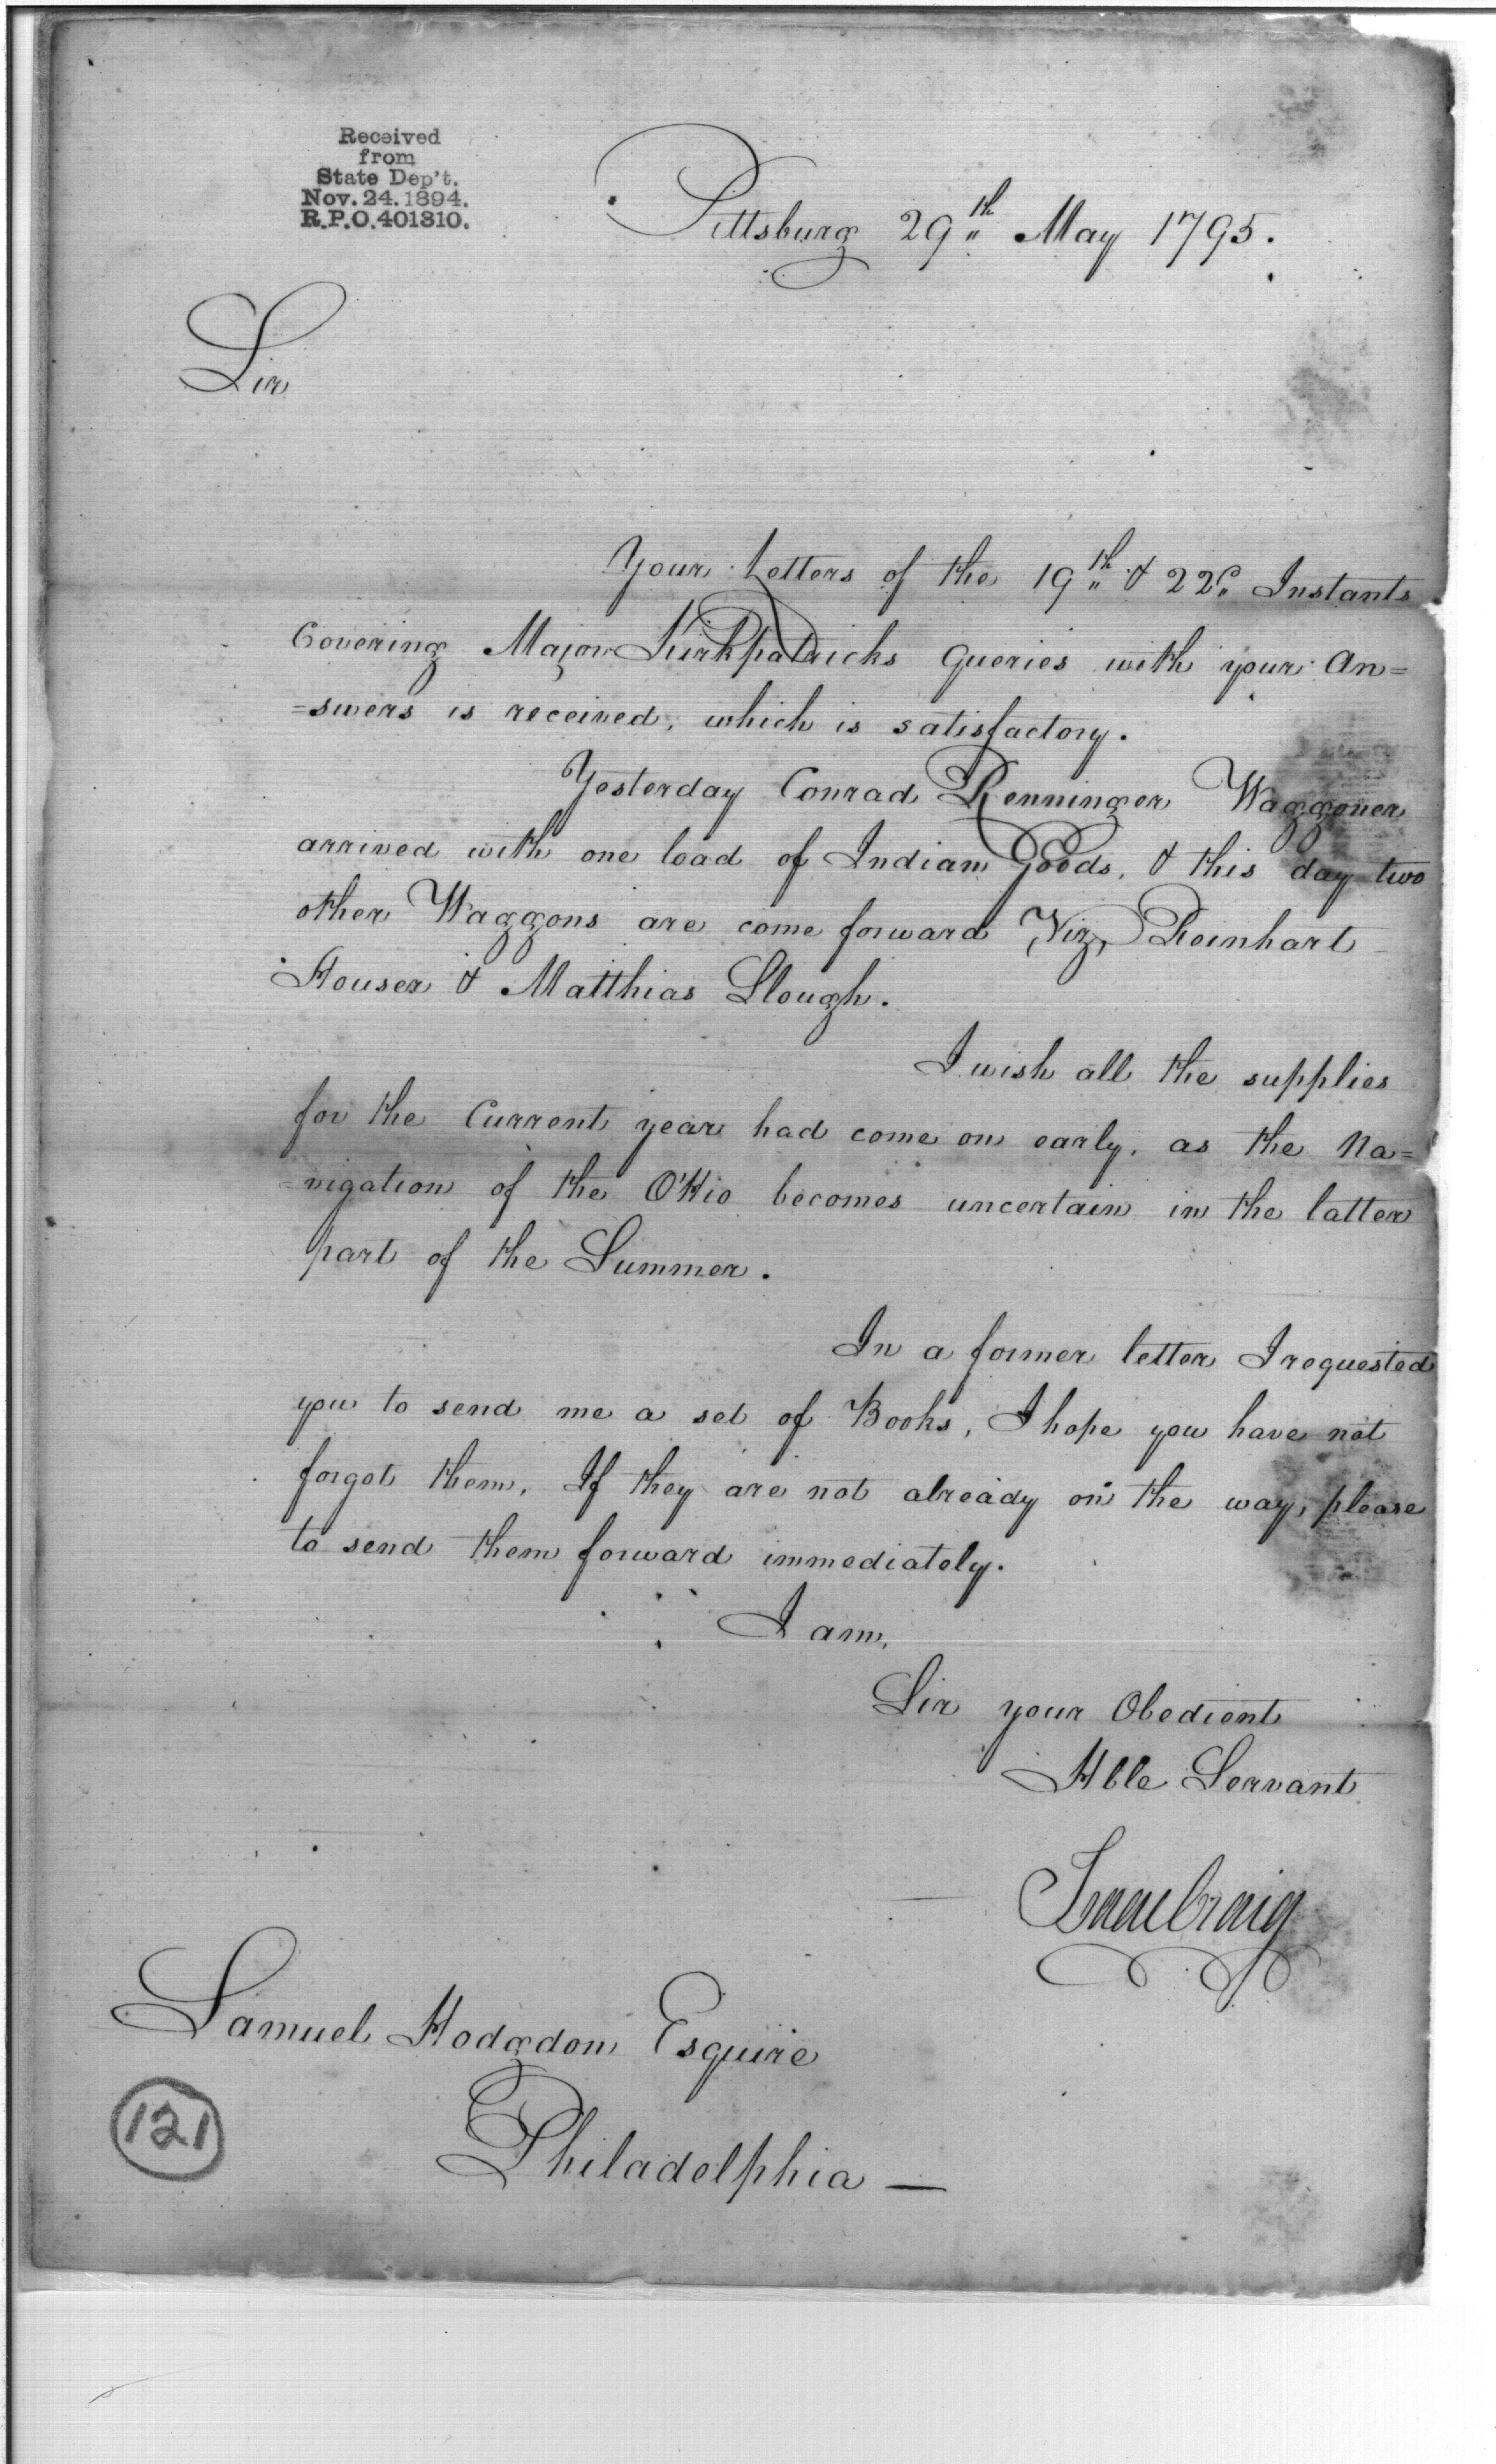 Received
from
State Dep't.
Nov. 24. 1894.
R.P.O. 401810.
Pittsburg 29th May 1795.
Sir
Your Letters of the 19th & 22d Instants
Covering Major Kirkpatricks Queries with your An=
=swers is received, which is satisfactory.
Yesterday Conrad Renninger Waggoner
arrived with one load of Indian Goods, & this day two
other Waggons are come forward Viz, Reinhart
Houser & Matthias Slough.
I wish all the supplies
for the Current year had come on early, as the Na=
=vigation of the O'Hio becomes uncertain in the latter
part of the Summer.
In a former letter I requested
you to send me a set of Books, I hope you have not
forgot them. If they are not already on the way, please
to send them forward immediately.
I am,
Sir your Obedient
Hble Servant
Isaac Craig
Samuel Hodgdon Esquire
Philadelphia —
121